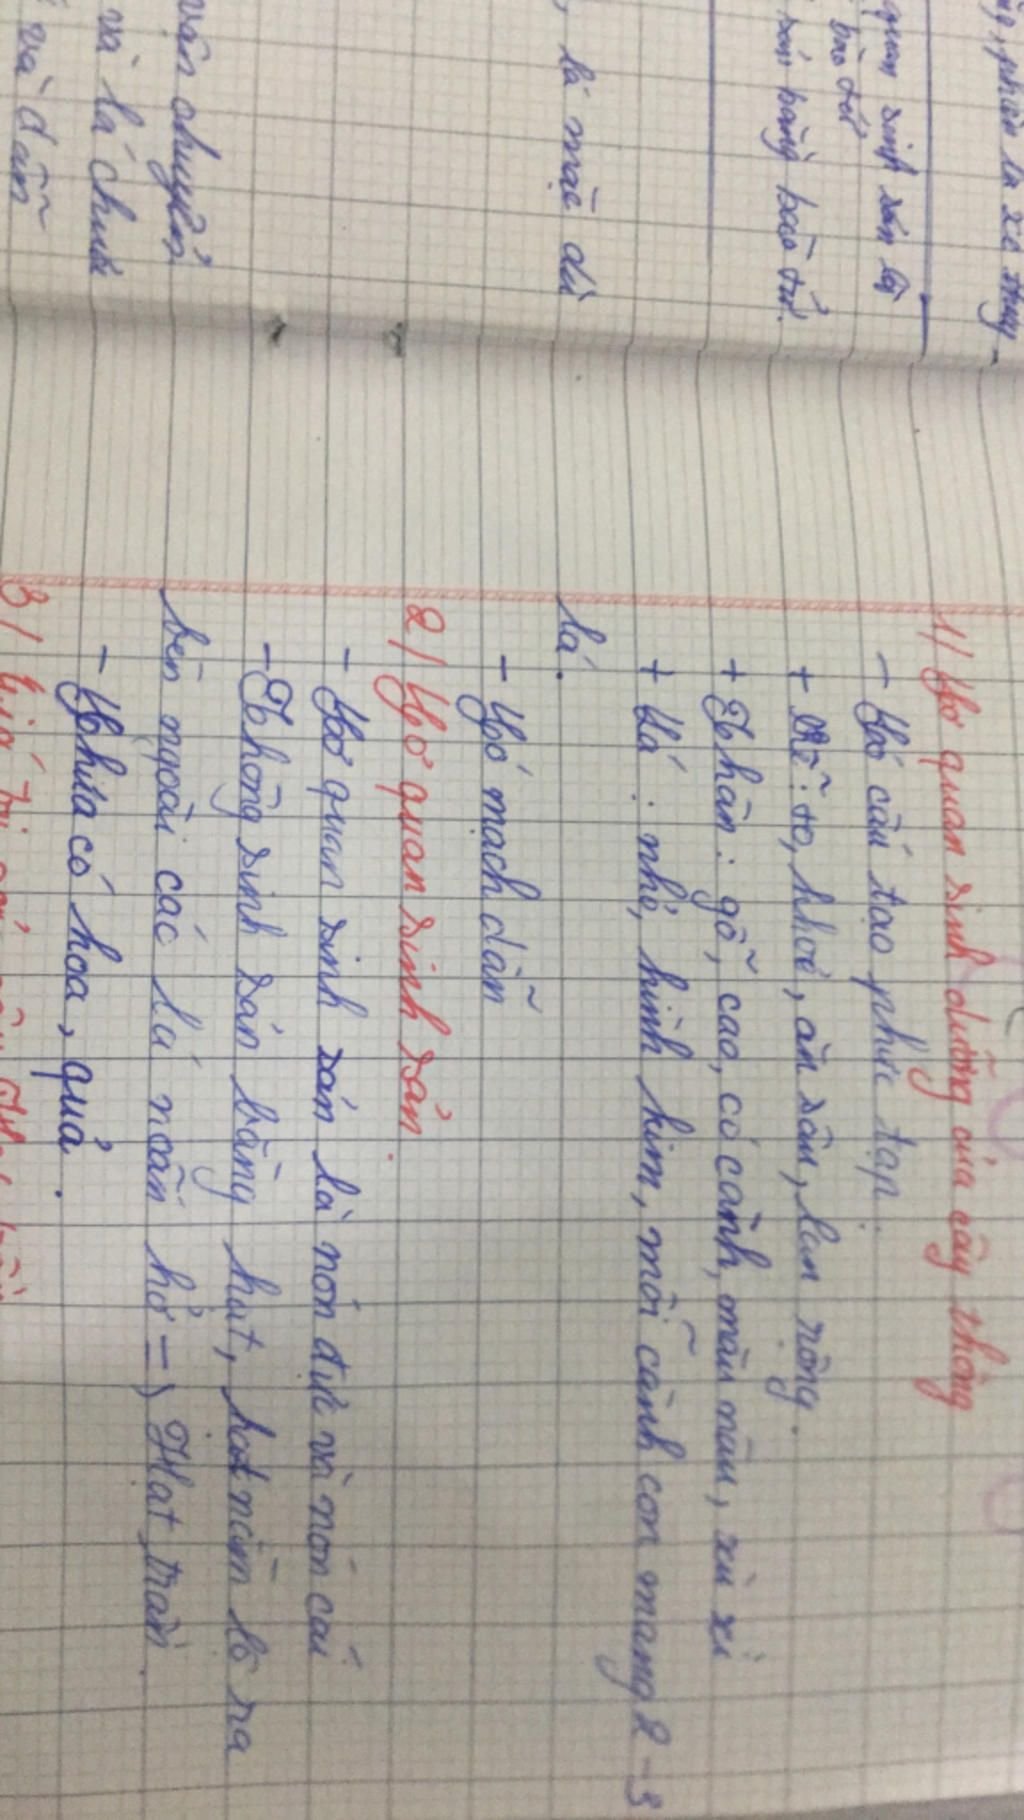 ng, phân là xẻ thùy -
quan sinh sản là
bào tử
sản bằng bào tử.
, lá mặc dù
vận chuyển
và lá chưa
và dẫn
1/ Cơ quan sinh dưỡng của cây thông
- Có cấu tạo phức tạp.
+ Rễ: to, khoẻ, ăn sâu, lan rộng.
+ Thân: gỗ, cao, có cành, màu nâu, xù xì
+ Lá: nhỏ, hình kim, mỗi cành con mang 2-3
lá.
- Có mạch dẫn
2/ Cơ quan sinh sản
- Cơ quan sinh sản là nón đực và nón cái
- Thông sinh sản bằng hạt, hạt nằm lộ ra
bên ngoài các lá noãn hở => Hạt trần.
- Chưa có hoa, quả.
3/ Giá trị